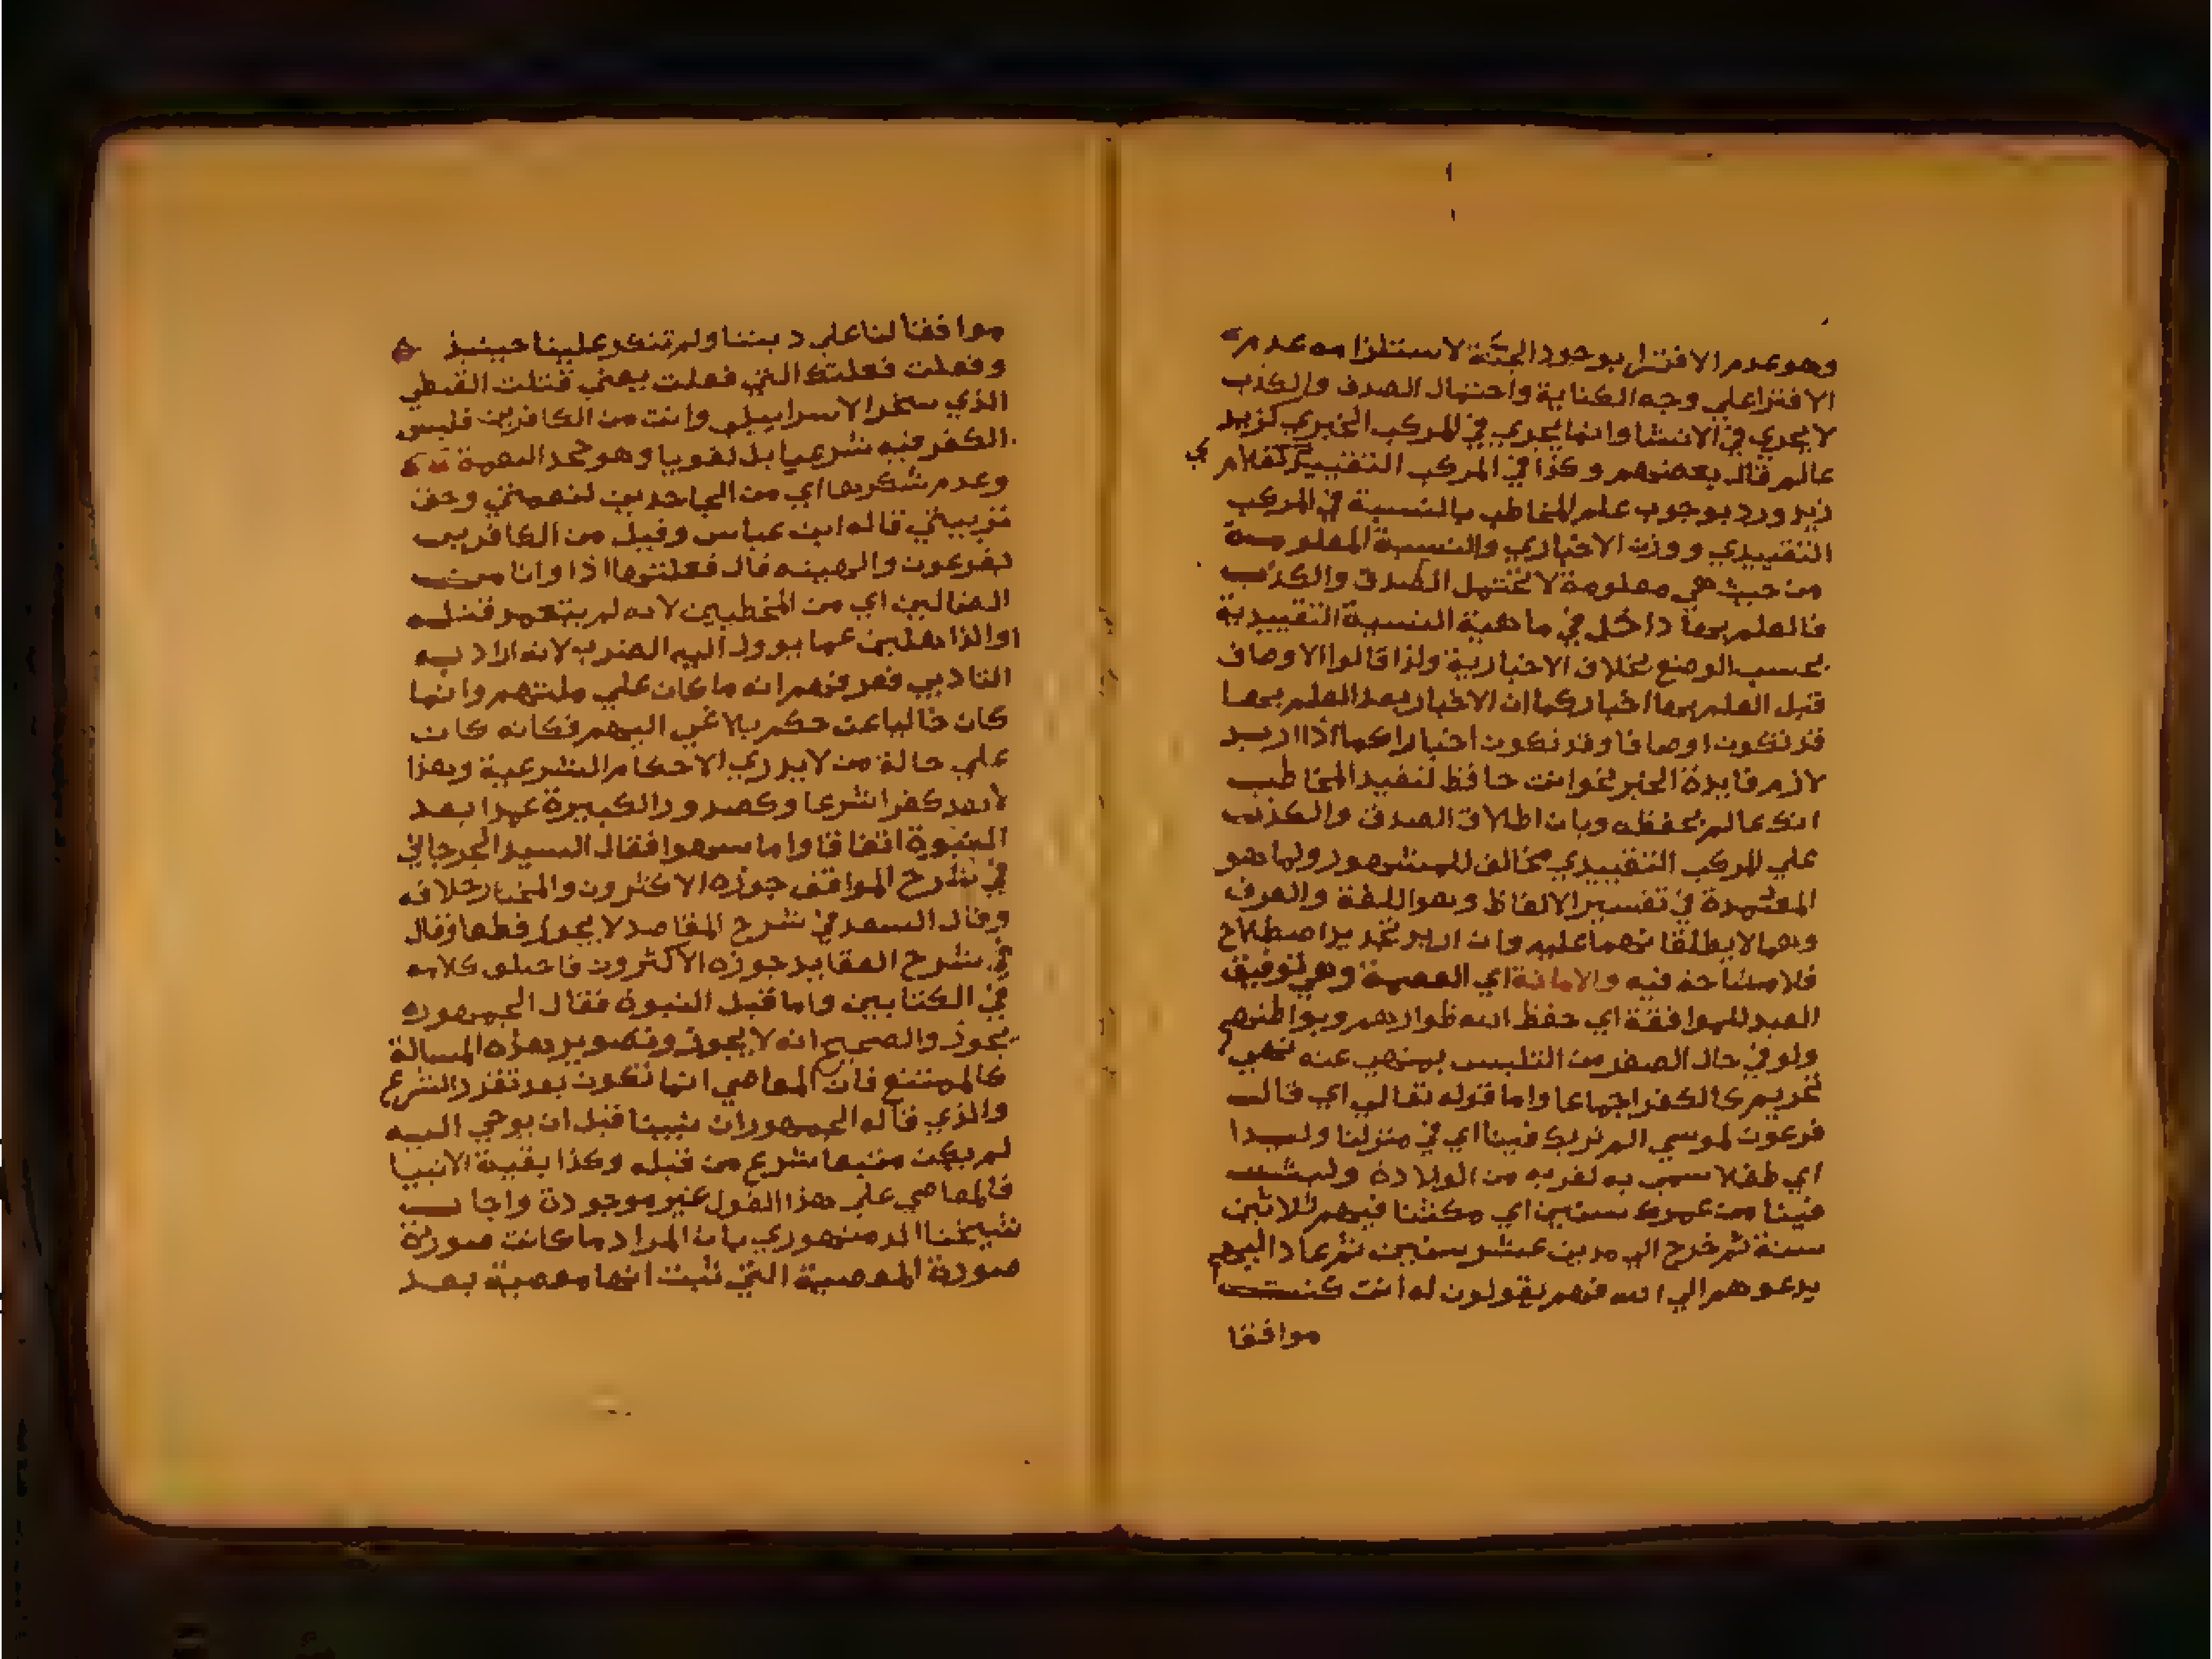 وهو عدم الافترا بوجود الجنة لاستلزامه عدم
الافترا علي وجه الكناية واحتمال الصدق والكذب
لا يجري في الانشا وانما يجري في المركب الخبري كزيد
عالم قال بعضهم وكذا في المركب التقييدي كغلام
زيد ورد بوجوب علم المخاطب بالنسبة في المركب
التقييدي ووزن الاخباري والنسبة المعلومة
من حيث هي معلومة لا تحتمل الصدق والكذب
فالعلم بها داخل في ماهية النسبة التقييدية
بحسب الوضع بخلاف الاخبارية ولذا قالوا الاوصاف
قبل العلم بها اخبار كما ان الاخبار بعد العلم بها
قد تكون اوصافا وقد تكون اخبارا كما اذا اريد
لازم فايدة الخبر نحو انت حافظ لتفيد المخاطب
انك عالم بحفظه وبان اطلاق الصدق والكذب
علي المركب التقييدي مخالف للمشهور ولما هو
المعتمدة في تفسير الالفاظ وهو اللغة والعرف
وهما لا يطلقانهما عليه وان اريد تجديد اصطلاح
فلا مشاحة فيه والامانة اي العصمة وهي توفيق
العبد للموافقة اي حفظ الله ظواهرهم وبواطنهم
ولو في حال الصغر من التلبس بمنهي عنه نهي
تحريم كالكفر اجماعا واما قوله تعالي اي قال
فرعون لموسي الم نربك فينا اي في منزلنا وليدا
اي طفلا سمي به لقربه من الولادة ولبثت
فينا من عمرك سنين اي مكثنا فيهم ثلاثين
سنة ثم خرج الي مدين عشر سنين ثم عاد اليهم
يدعوهم الي الله فهم يقولون له انت كنت
موافقا
موافقا لنا علي ديننا ولم تنكر علينا حينيذ
وفعلت فعلتك التي فعلت يعني قتلت القبطي
الذي سخر الاسراييلي وانت من الكافرين فليس
الكفر فيه شرعيا بل لغويا وهو جحد النعمة
وعدم شكرها اي من الجاحدين لنعمتي وحق
تربيتي قاله ابن عباس وقيل من الكافرين
بفرعون والهيته قال فعلتها اذا وانا من
الضالين اي من المخطيين لانه لم يتعمد قتله
او الذاهلين عما يوول اليه الضرب لانه اراد به
التاديب فمرفهم انه ما كان علي ملتهم وانما
كان خاليا عن حكم بلاغي اليهم فكانه كان
علي حالة من لا يدري الاحكام الشرعية وهذا
لا يعد كفرا شرعا وكصدور الكبيرة عمدا بعد
النبوة اتفاقا واما سهوا فقال السيد الجرجاني
في شرح المواقف جوزه الاكثرون والمختار خلافه
وقال السعد في شرح المقاصد لا يجوز قطعا وقال
في شرح العقايد جوزه الاكثرون فاختلف كلامه
في الكتابين واما قبل النبوة فقال الجمهور
يجوز والصحيح انه لا يجوز وتصوير هذه المسالة
كالممتنع فان المعاصي انما تكون بعد تقرر الشرع
والذي قاله الجمهور ان نبينا قبل ان يوحي اليه
لم يكن متبعا شرع من قبله وكذا بقية الانبيا
فالمعاصي علي هذا القول غير موجودة واجاب
شيخنا الدمنهوري بان المراد ما كانت صورته
صورة المعصية التي تثبت انها معصية بعد